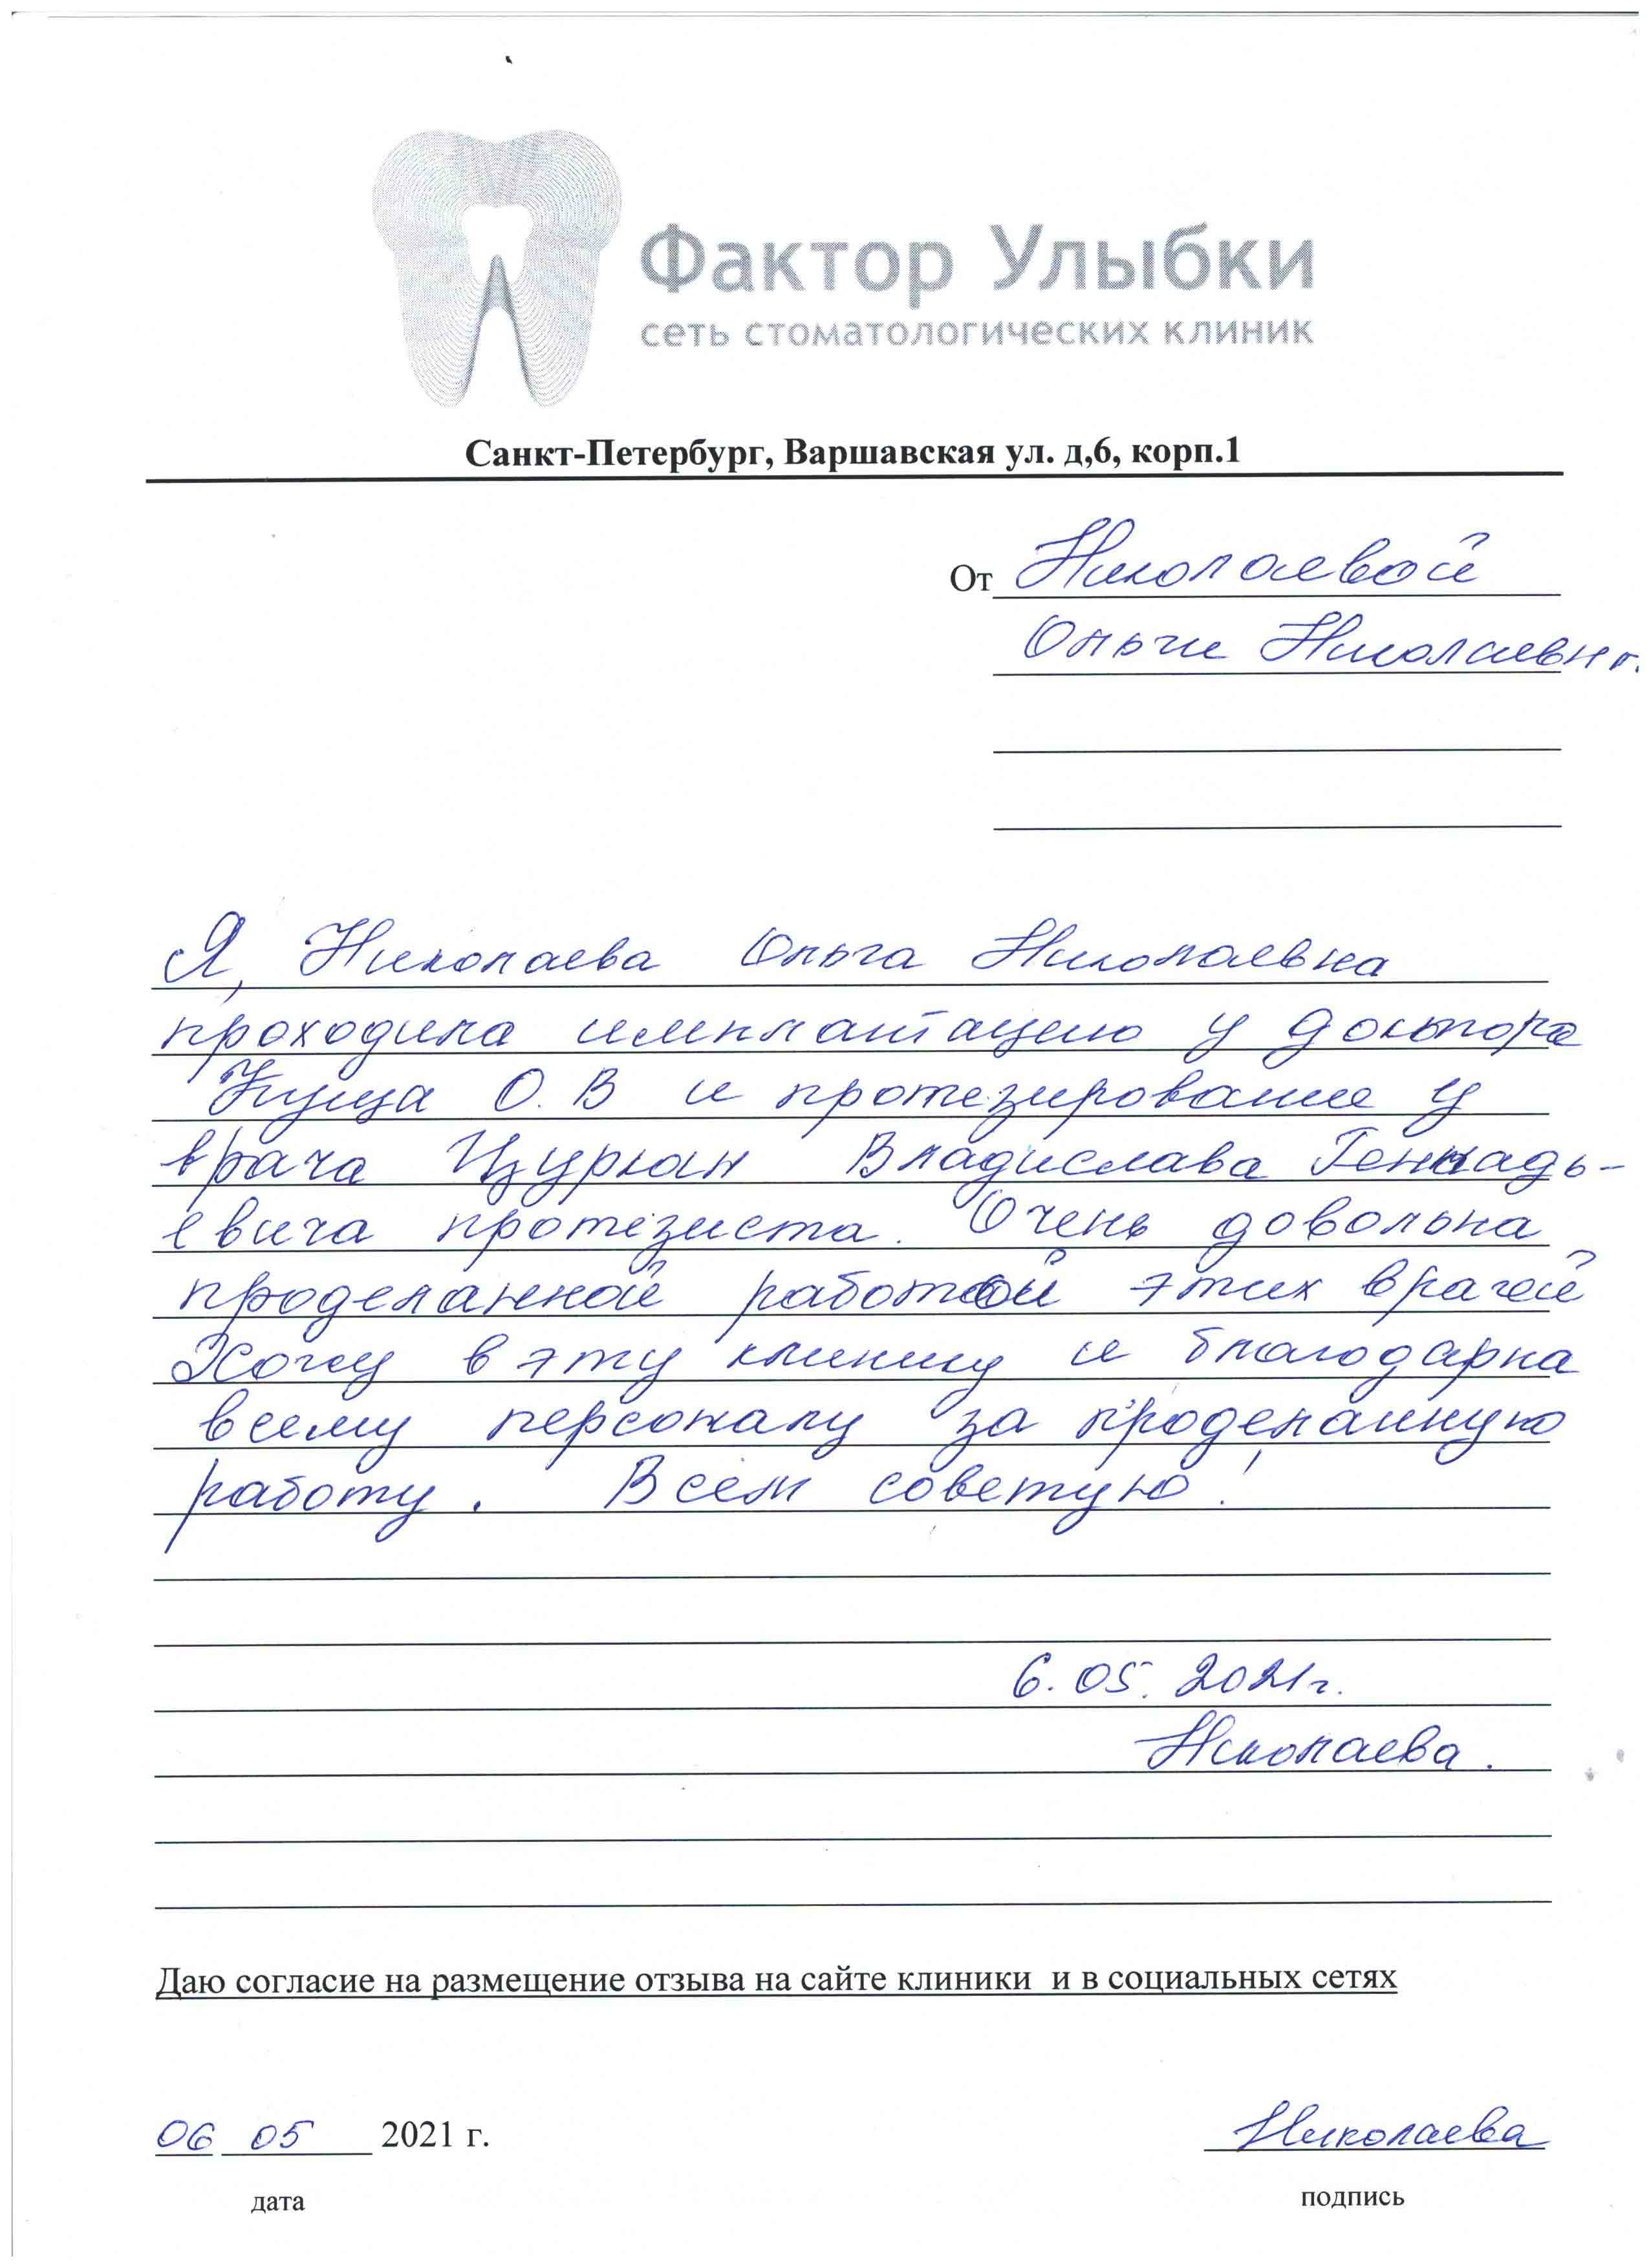 Фактор Улыбки
сеть стоматологических клиник
Санкт-Петербург, Варшавская ул. д,6, корп.1
От Николаевой
Ольги Николаевны.
Я, Николаева Ольга Николаевна
проходила имплантацию у доктора
О.В и протезирование у
врача Цуркан Владислава Геннадь-
евича протезиста. Очень довольна
проделанной работой этих врачей
Хочу в эту клинику и благодарна
всему персоналу за проделанную
работу. Всем советую!
6.05.2021г.
Николаева.
Даю согласие на размещение отзыва на сайте клиники и в социальных сетях
06 05 2021 г. Николаева
дата подпись